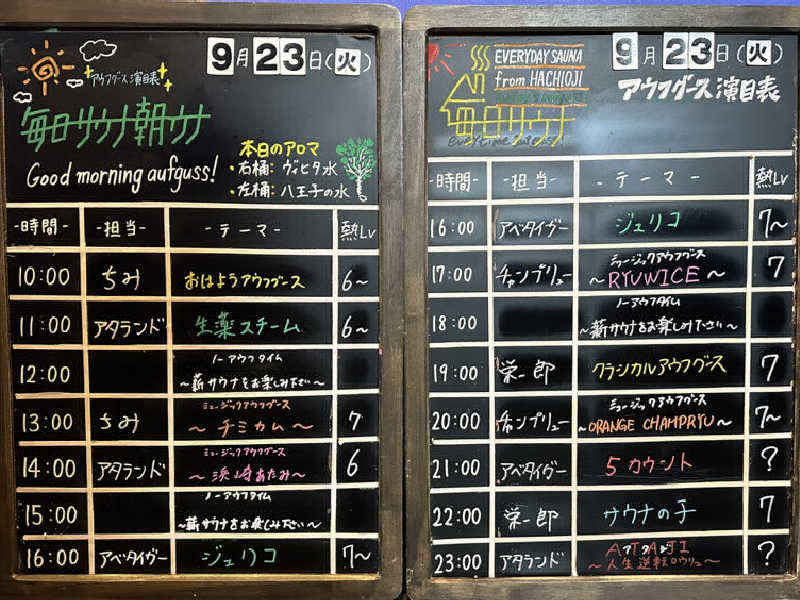 アウフグース演目表
9月23日(火)
毎日サウナ朝ウナ
Good morning aufguss!
本日のアロマ
・右桶: ヴィヒタ水
・左桶: 八王子の水
-時間- -担当- -テーマ- 熱Lv
10:00 ちみ おはようアウフグース 6~
11:00 アタランド 生薬スチーム 6~
12:00 ノーアウフタイム
~薪サウナをお楽しみ下さい~
13:00 ちみ ミュージックアウフグース 7
~チミカム~
14:00 アタランド ミュージックアウフグース 6
~浜崎あたみ~
15:00 ノーアウフタイム
~薪サウナをお楽しみ下さい~
16:00 アベタイガー ジェリコ 7~
EVERYDAY SAUNA
from HACHIOJI
毎日サウナ
9月23日(火)
アウフグース演目表
-時間- -担当- -テーマ- 熱Lv
16:00 アベタイガー ジェリコ 7~
17:00 チャンプリュー ミュージックアウフグース 7
~RYUWICE~
18:00 ノーアウフタイム
~薪サウナをお楽しみ下さい~
19:00 栄一郎 クラシカルアウフグース 7
20:00 チャンプリュー ミュージックアウフグース 7~
~ORANGE CHAMPRYU~
21:00 アベタイガー 5カウント ?
22:00 栄一郎 サウナの子 7
23:00 アタランド ATAJI ?
~人生逆転ロウリュ~